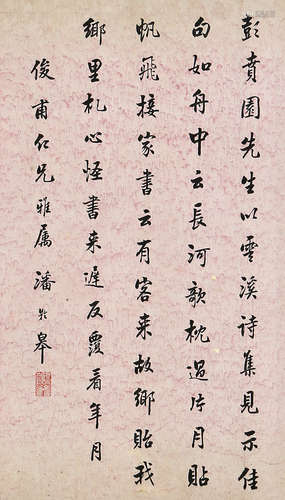 彭賁園先生以雲溪詩集見示佳
句如舟中云長河歌枕過片月貼
帆飛接家書云有客来故鄉貽我
鄉里札心怪書来遲反覆看年月
俊甫仁兄雅属潘齡皋